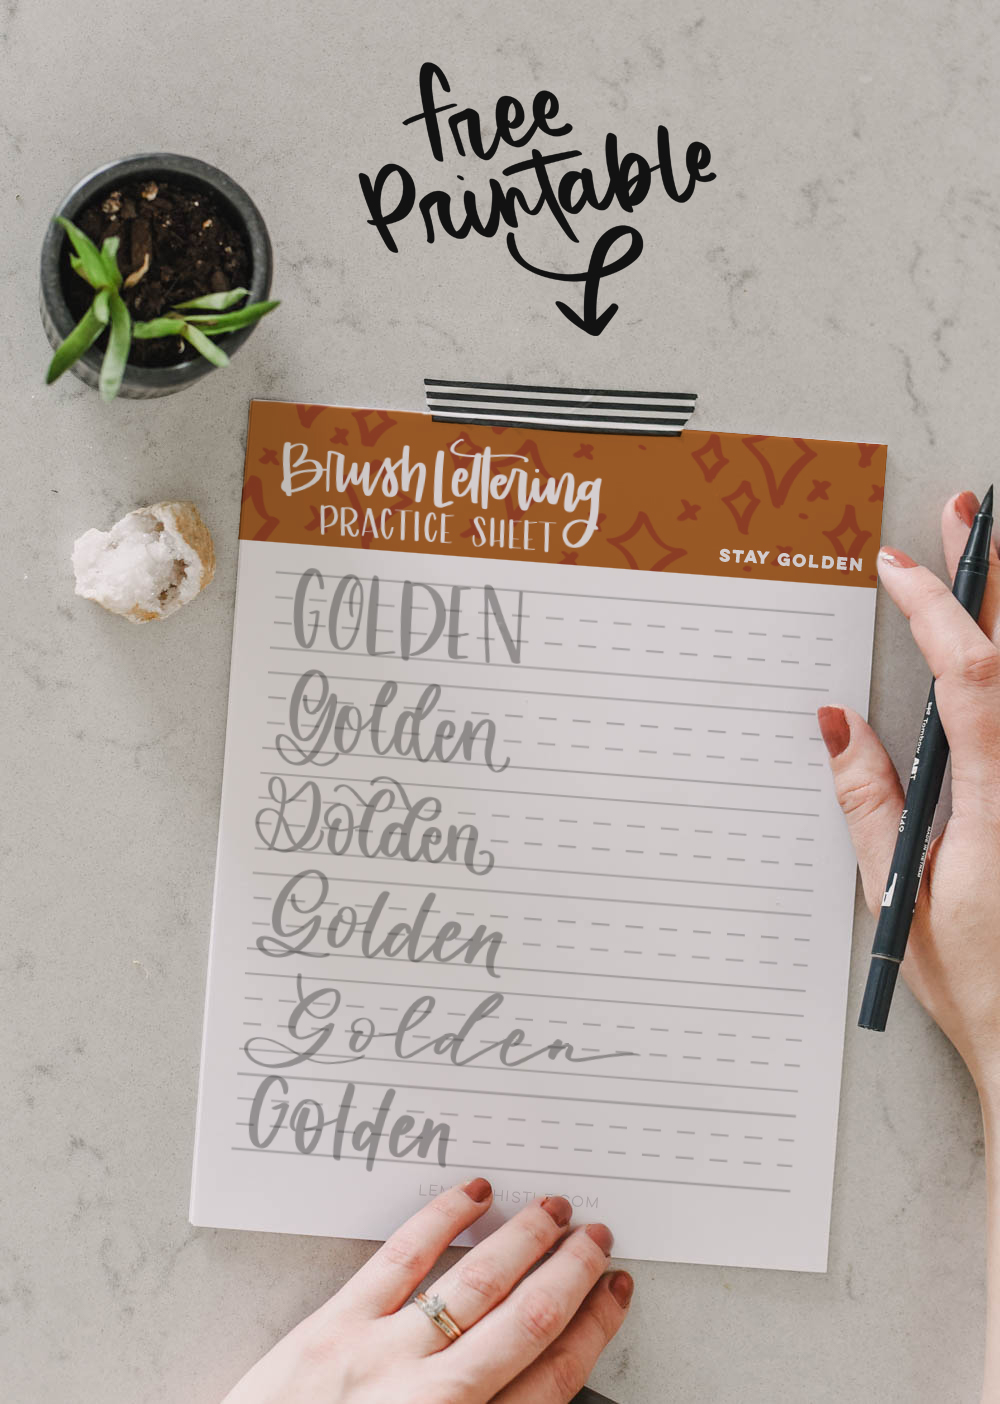 free
Printable
Brush Lettering
PRACTICE SHEET
STAY GOLDEN
GOLDEN
Golden
Golden
Golden
Golden
Golden
Tombow ABT
N49
MADE IN VIETNAM